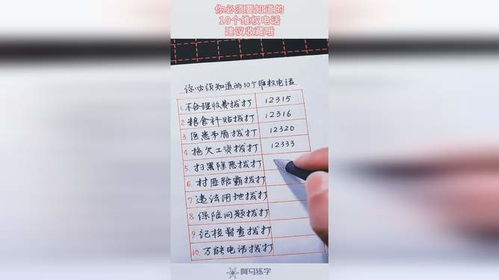 你必须要知道的
10个维权电话
建议收藏哦
你必须知道的10个维权电话
1.不合理收费拨打 12315
2.粮食补贴拨打 12316
3.医患矛盾拨打 12320
4.拖欠工资拨打 12333
5.扫黑除恶拨打
6.村匪路霸拨打
7.违法用地拨打
8.保险问题拨打
9.记检督查拨打
10.万能电话拨打
阿马练字